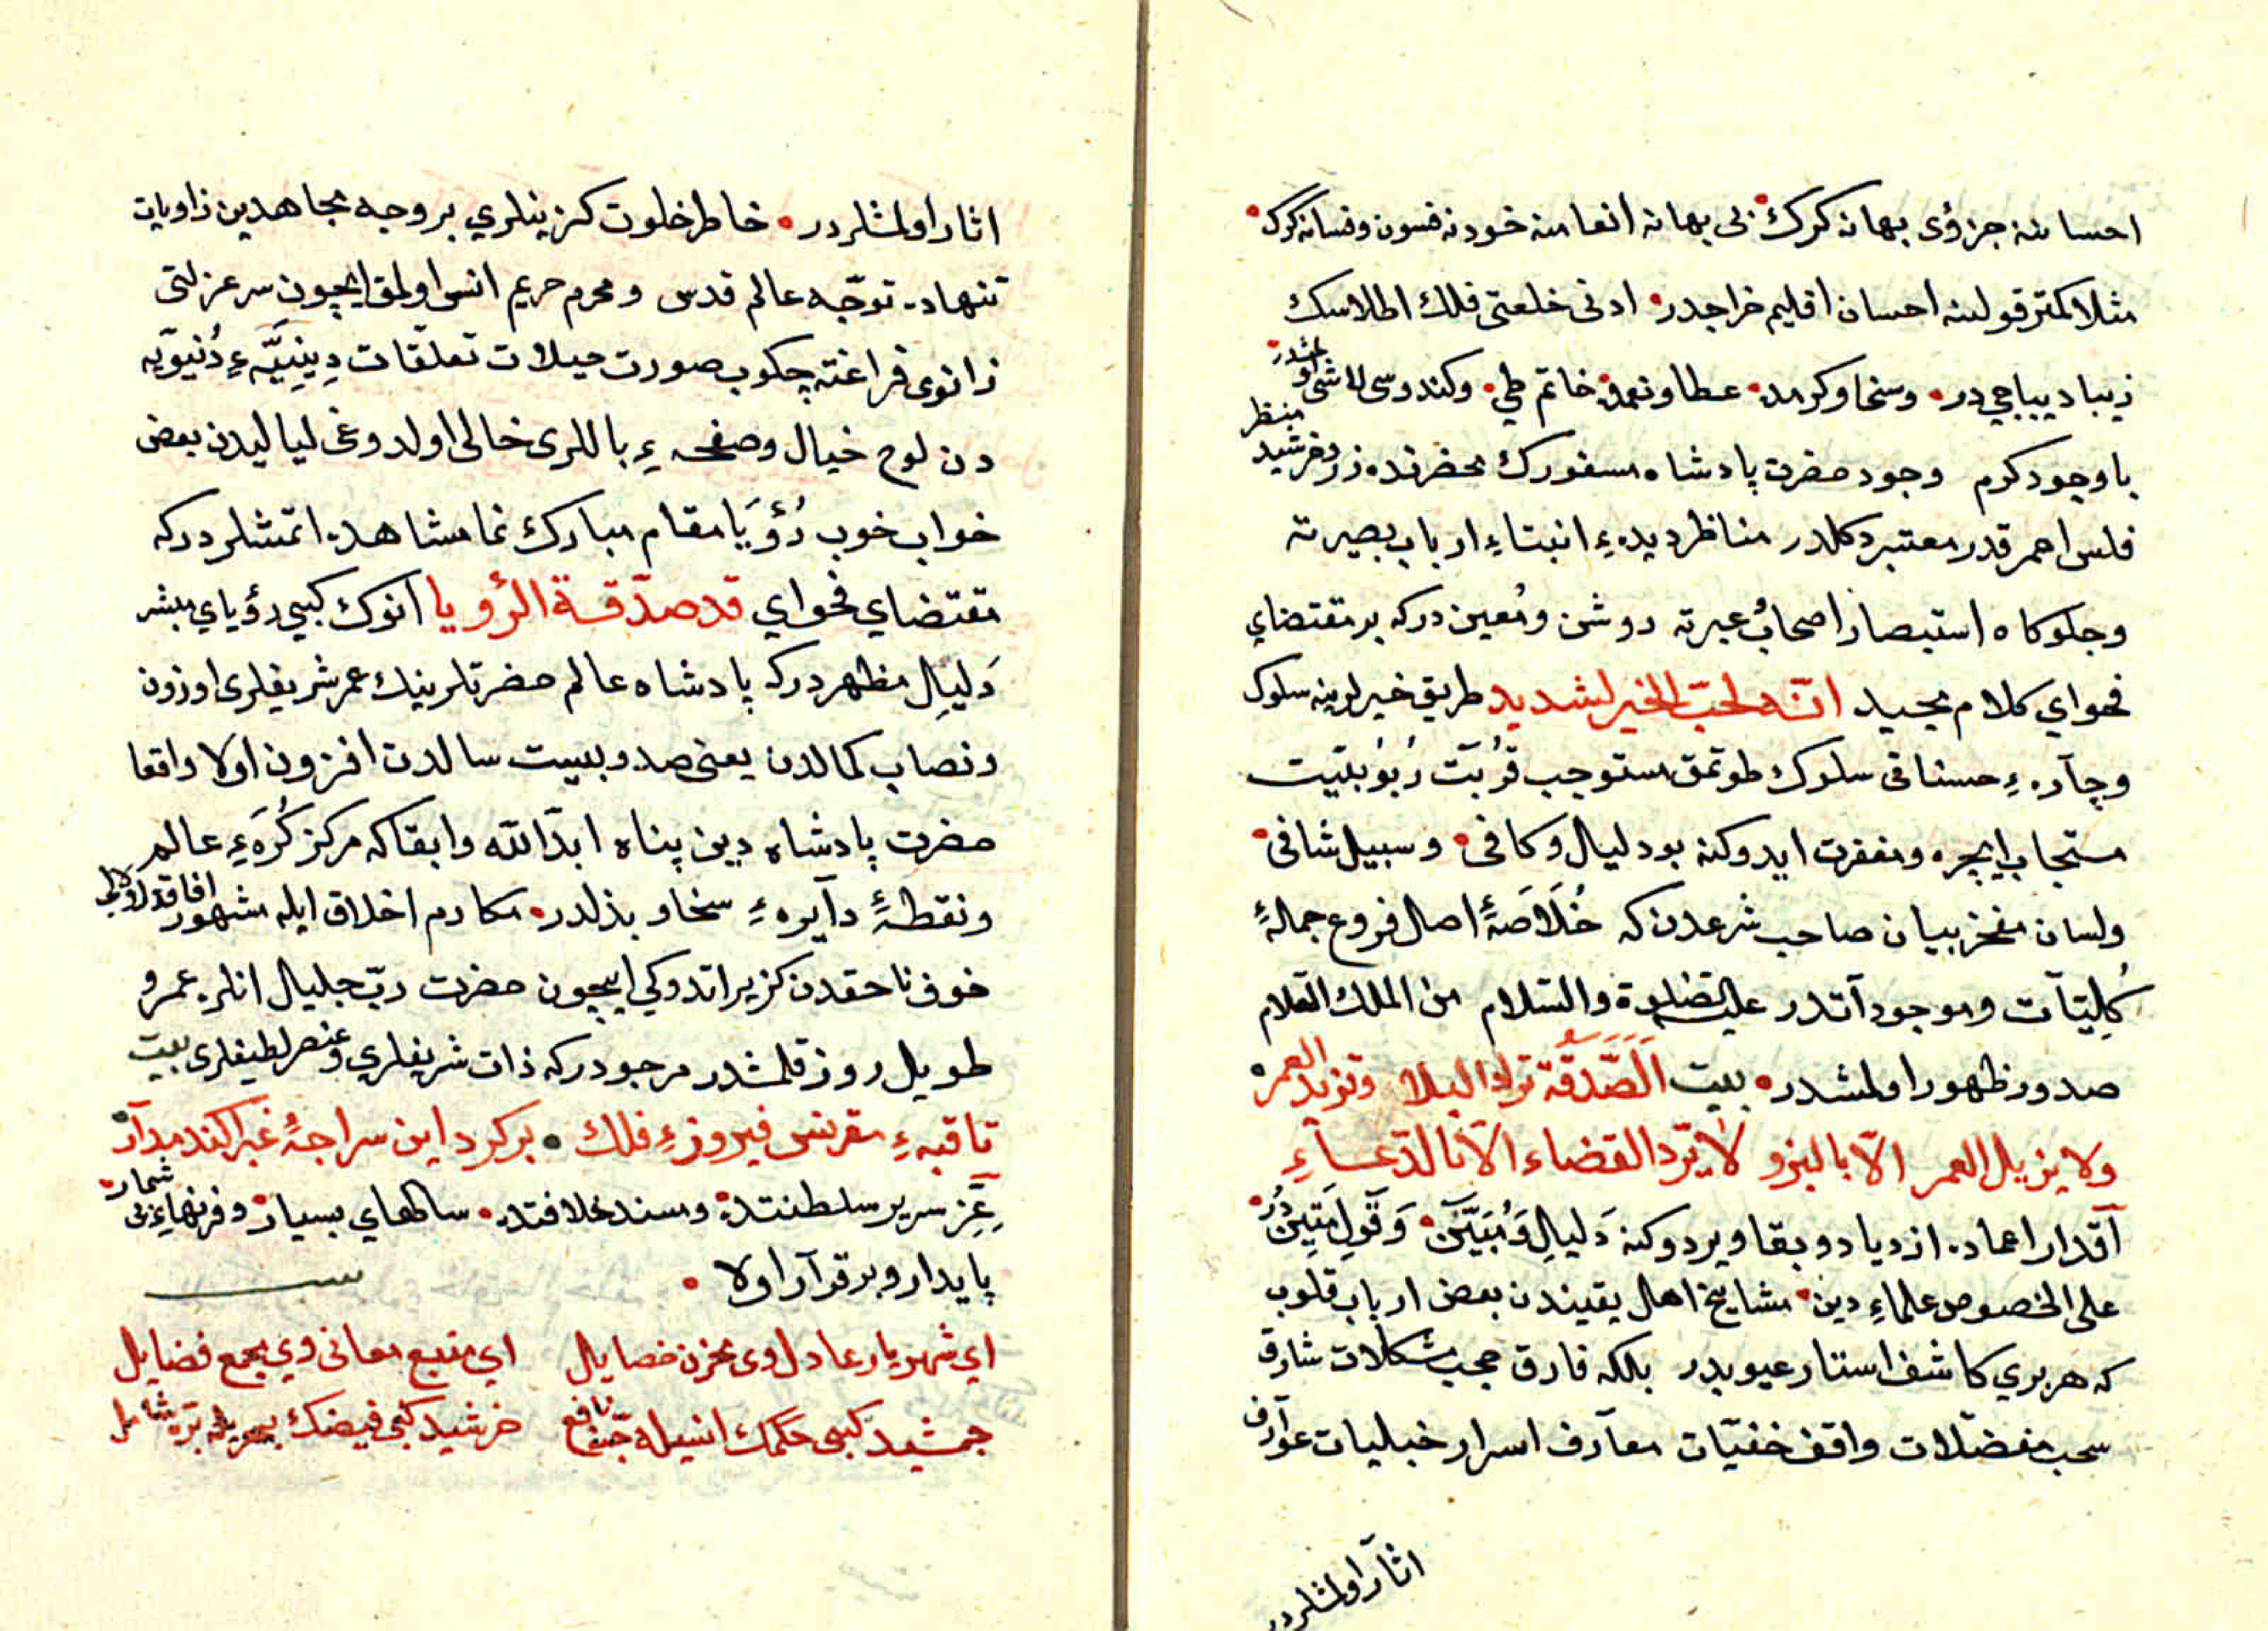 احسانه جزؤى بهانه كرك • بى بهانه انعامنه خود نه فسون و فسانه كرك •
مثلا كمتر قولنه احسان اقليم خراجدر • ادنى خلعتى فلك اطلاسك
زيبا ديباجي در • وسخا وكرمده • عطا ونعمده • خاتم طي • وكندوسى لاشى اولمشدر •
با وجود كرم وجود حضرت پادشاه سفورك محضرنده زر وخرشيد منظر
فلس احمر قدر معتبر دكلدر مناظر ديدهٔ انبتاء ارباب بصيرته
وجلوكاه استبصار اصحاب عبرته روشن ومعين دركه بر مقتضاي
فحواي كلام مجيد انّه لحبّ الخير لشديد طريق خير لرينه سلوك
وچآرهٔ حسناتى سلوك طوتمق مستوجب قُربَت رُبُوبيّت
مستجاب ايچره ومغفرت ايدوكنه بو دليال وكافى • وسبيل شافى •
ولسان مفخر بيان صاحب شرعدن كه خُلَاصَهٔ اصال فروع جملهٔ
كُلِيّآت وموجودآتدر عليه الصّلوة والسّلام من الملك العلام
صدور ظهور اولمشدر • بيت الَصَّدَقَة ترد البلا وتزيد العمر •
ولا يزيل العمر الّا بالبزو لا يَرّد القضاء الّا بالدّعآء
آقدار اعماده ازدياد وبقا ويردوكنه دَليالِ وَمُبَيَّنْ • وَقَولِ مَتِينْ دُرْ •
على الخصوص علماء دين • مشايخ اهل يقيندن بعض ارباب قلوب
كه هر بري كاشف استار عيوبدر بلكه فارق حجب مشكلات شارق
سحب مفضّلات واقف خفيّات معآرف اسرار خبليات عوآرف
اثآر اولمشلردر
اثار اولمشلردر • خاطر خلوت كزينلري بر وجه مجاهدين زاويات
تنهاده توجّه عالم قدس ومحرم حريم انس اولمق ايچون سر عزلتى
زانوى فراغته چكوب صورت حيلات تعلّقات دِينِيَّهٔ دُنيوّيه
دن لوح خيال وصفحهٔ باللرى خالى اولدوغى ليا ليدن بعض
خواب خوب رُؤيَا مقام مبارك نما مشاهده اتمشلردركه
مقتضاي فحواي قد صدّقة الرؤيا انوك كبي رؤياي مبشر
دَليالِ مظهردركه پادشاه عالم حضرتلرينك عمر شريفلرى اوزون
ونصاب كمالدن يعنى صد وبيست سالدن افزون اولا واقعا
حضرت پادشاه دين پناه ابدّالله وابقاكه مركز كُرَهٔ عالم
ونقطهٔ دآيرهٔ سخا وبذلدر • مكارم اخلاق ايله مشهور افاقدر
خوف ناحقدن كزير اتدوكي ايچون حضرت ربّ جليال انلره عمر و
طويل روز قلمشدر مرجودركه ذات شريفلري وعنصر لطيفلرى بيت
تا قبهٔ مقرنس فيروزهٔ فلك • بركرد اين سراجهٔ غبرا كند مدآر •
عِزّ سرير سلطنتده • ومسند خلافتده • سالهاي بسيار • وقرنهاء بى شمار •
پايدار وبرقرآر اولا •
اي شهريار عادل وى مخزن خصايال اي منبع معانى وي مجمع فضايل
جمشيد كبى حكمك انسيله جنّه نافع خرشيد كبى فيضك بحريله برّه شامل